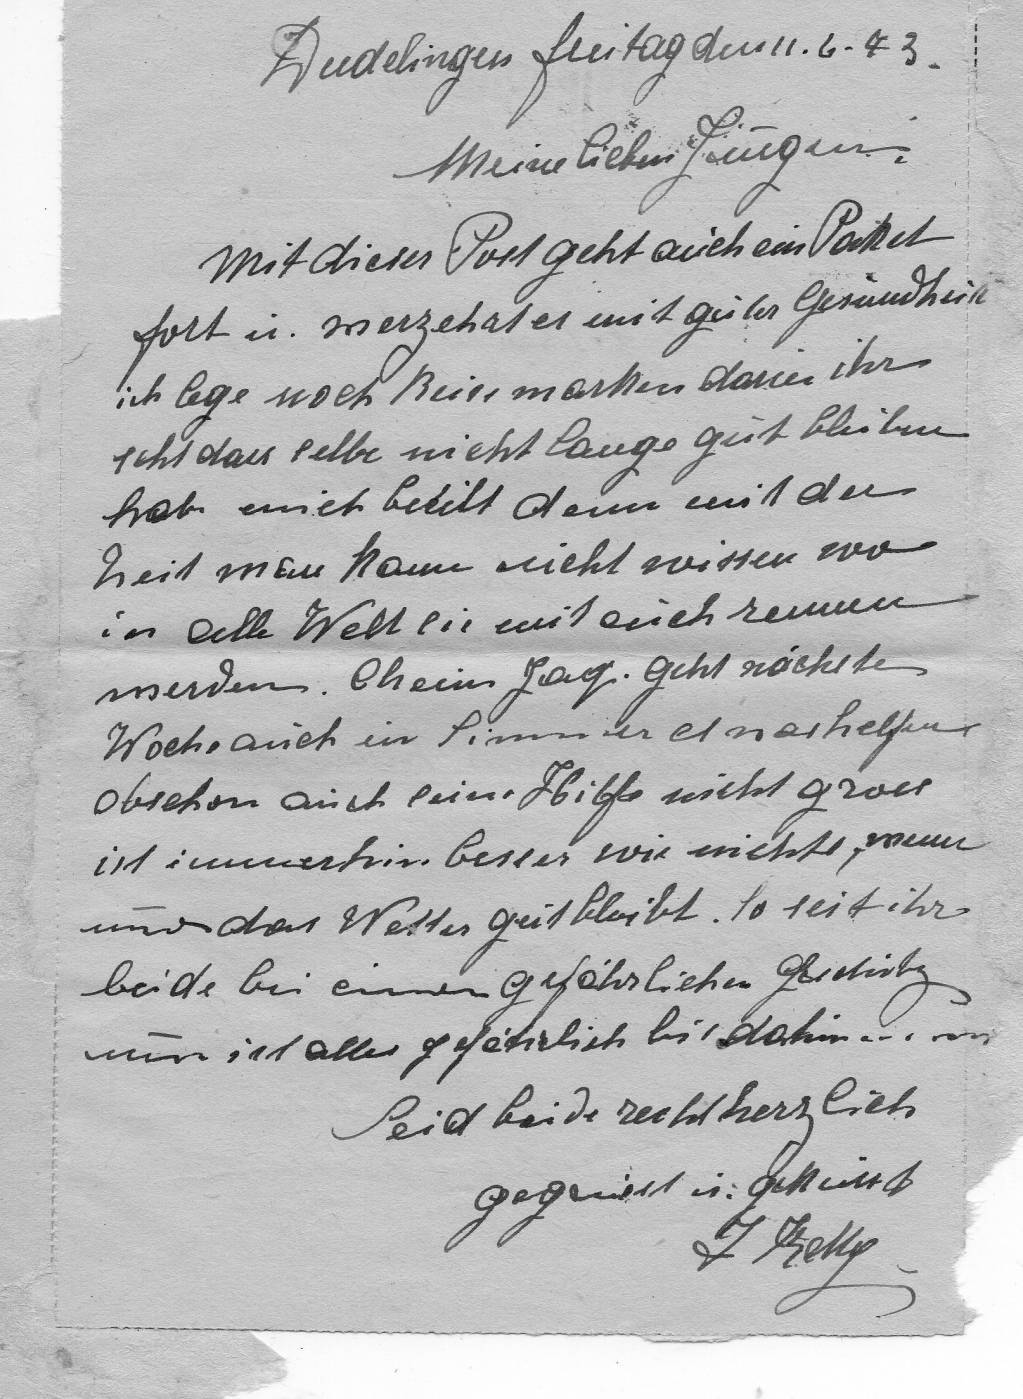 Düdelingen freitag den 11. 6. 43.
Meine lieben Jüngen.
Mit dieser Post geht aüch ein Paket
fort ü. werzehrt es mit güter Gesündheit
ich lege noch Reisemarken darin ihr
seht dass selbe nicht lange güt bleiben
hab mich beeilt denn mit der
Zeit man kann nicht wissen wo
in alle Welt sie mit eüch rennen
werden. Jag. geht nächste
Woche aüch in Zimmer helfen
obschon aüch seine Hilfe nicht gross
ist immerhin besser wie nichts, wenn
nür das Wetter güt bleibt. So seit ihr
beide bei einem gefährlichen
nün ist alles gefährlich bis dahin
Seid beide recht herzlich
gegrüsst ü. geküsst